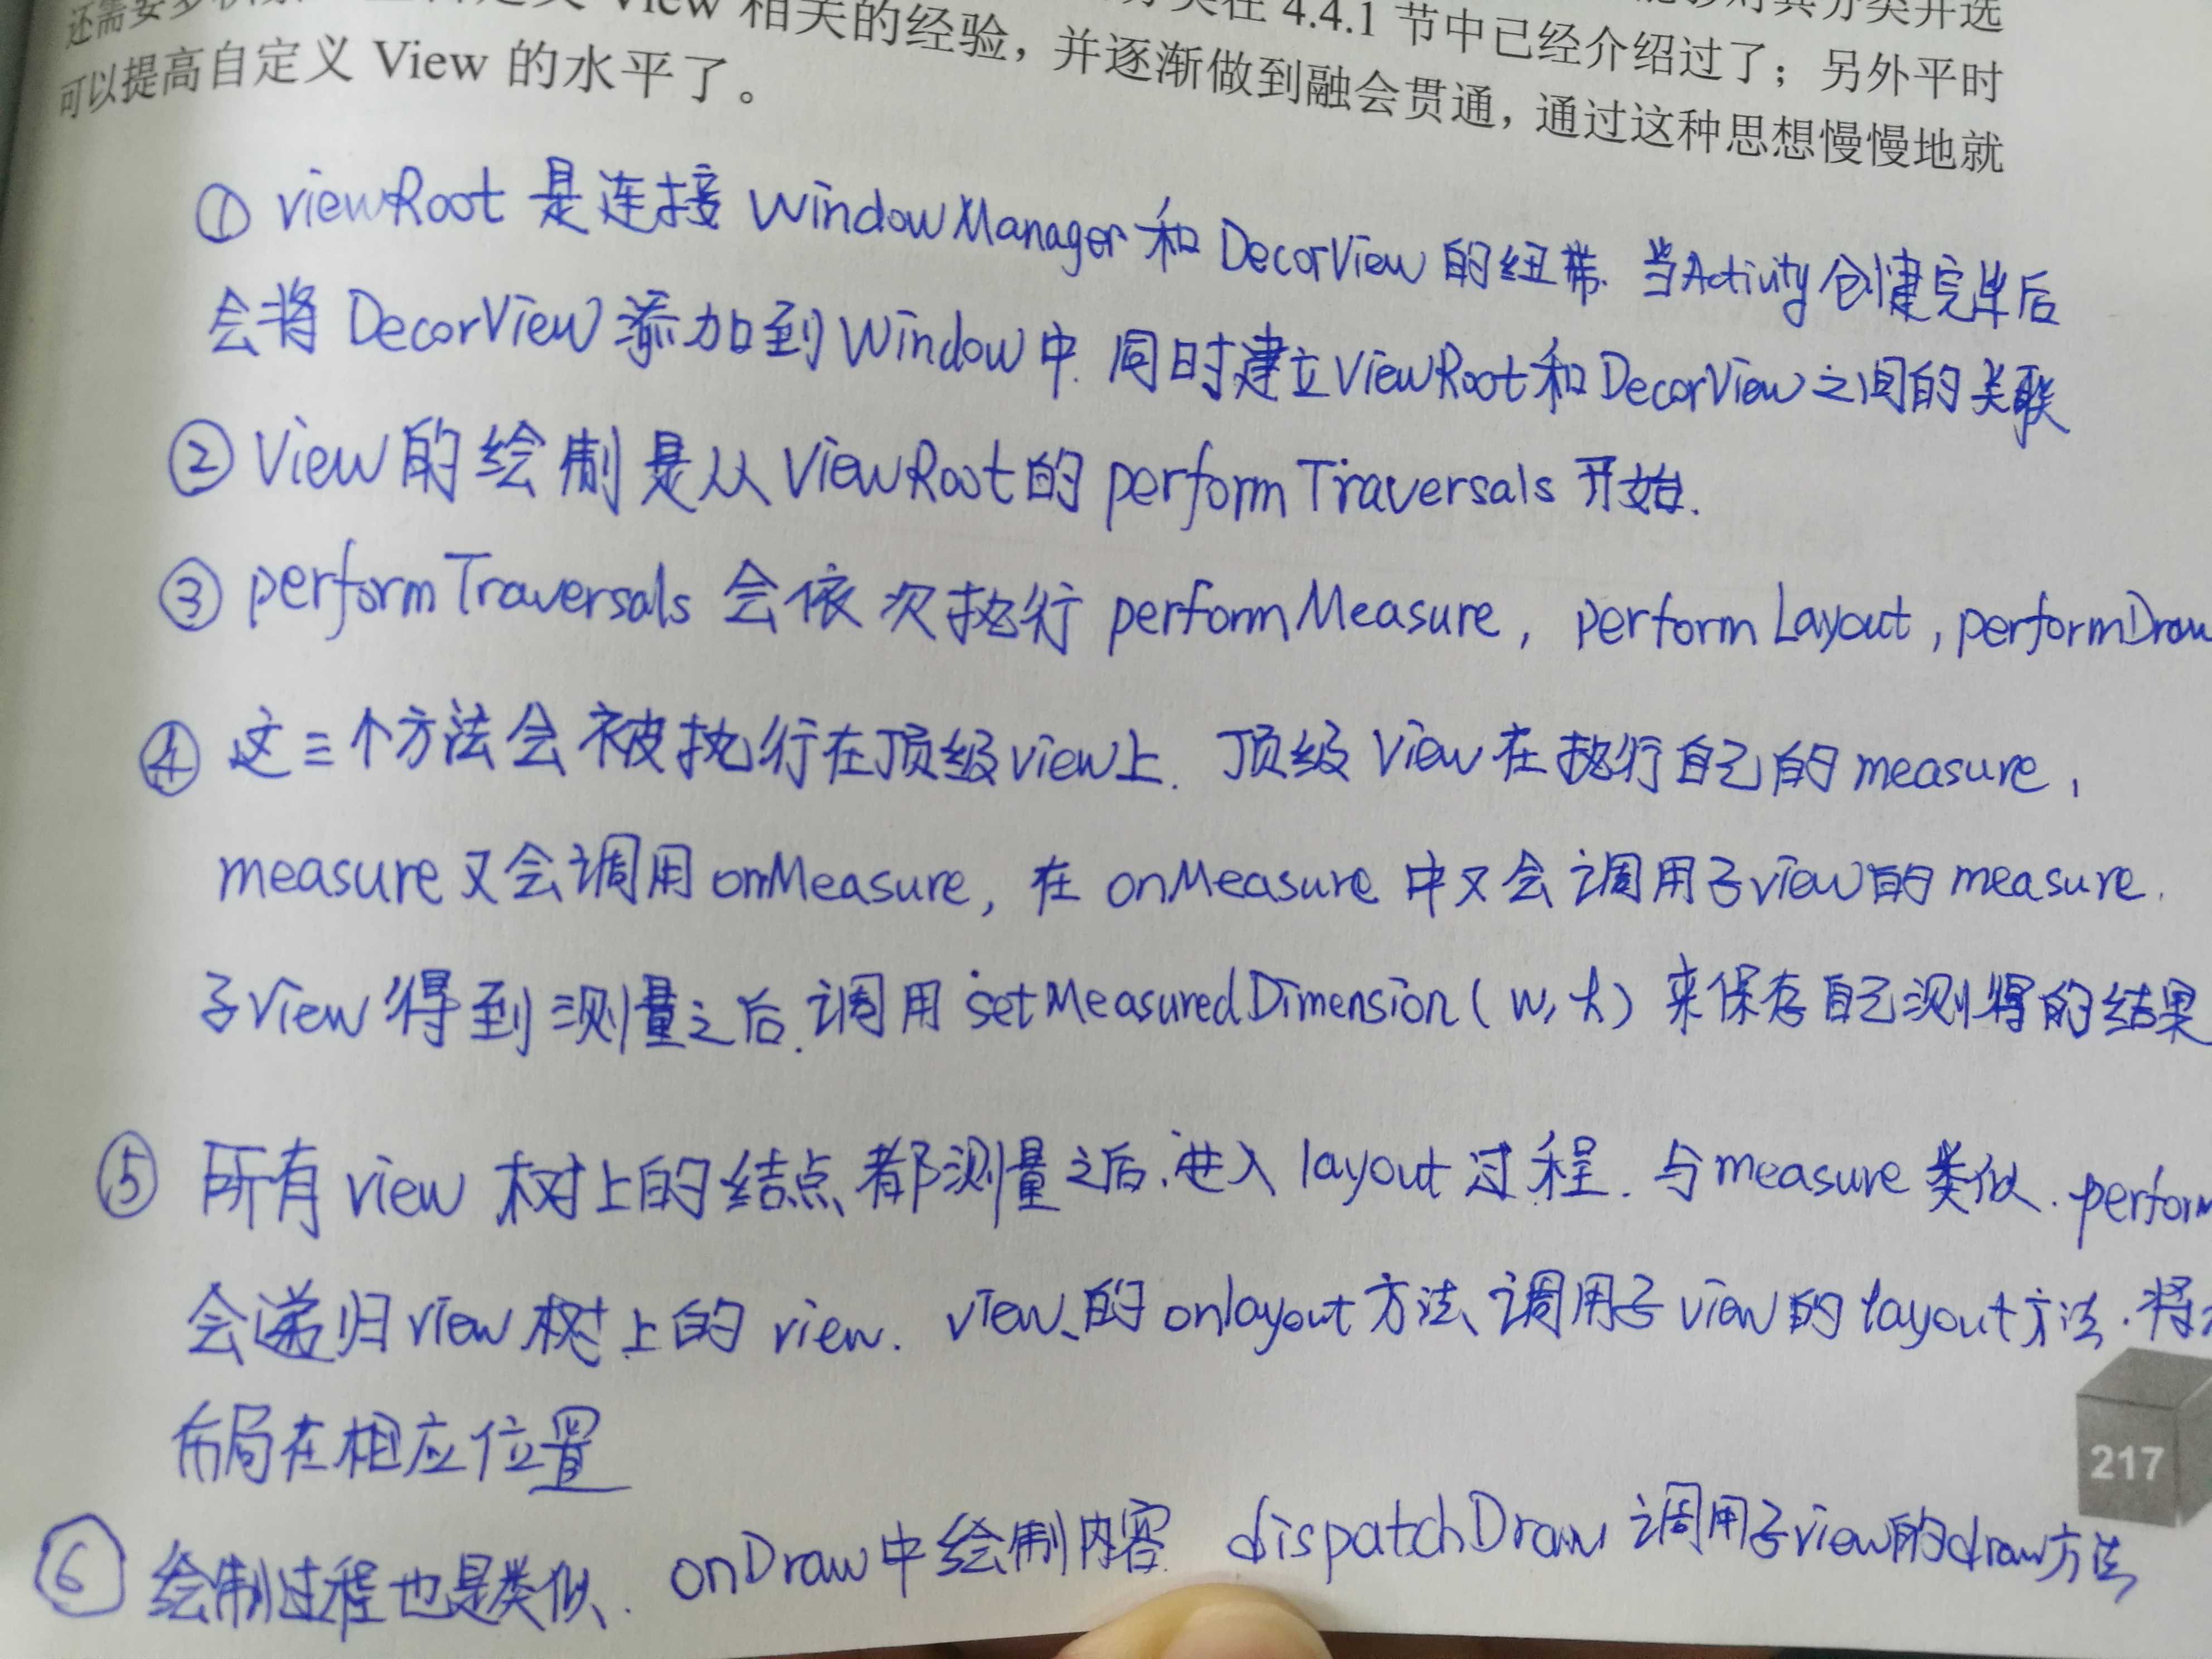 还需要多 View 相关的经验，并逐渐做到融会贯通，通过这种思想慢慢地就
在 4.4.1 节中已经介绍过了；另外平时
对其分类并选
可以提高自定义 View 的水平了。
① viewRoot 是连接 WindowManager 和 DecorView 的纽带. 当Activity创建完毕后
会将 DecorView 添加到 Window 中. 同时建立ViewRoot和DecorView之间的关联
② View 的绘制是从 ViewRoot的 performTraversals 开始.
③ performTraversals 会依次执行 performMeasure, performLayout, performDraw
④ 这三个方法会被执行在顶级view上. 顶级 View 在执行自己的 measure,
measure 又会调用 onMeasure, 在 onMeasure 中又会调用子view的 measure.
子View 得到测量之后.调用 setMeasuredDimension(w,h) 来保存自己测得的结果
⑤ 所有 view 树上的结点都测量之后.进入 layout 过程. 与measure 类似. perform
会递归view 树上的 view. view的 onlayout 方法调用子 view 的 layout方法.将
布局在相应位置
217
⑥ 绘制过程也是类似. onDraw中绘制内容 dispatchDraw 调用子view的draw方法